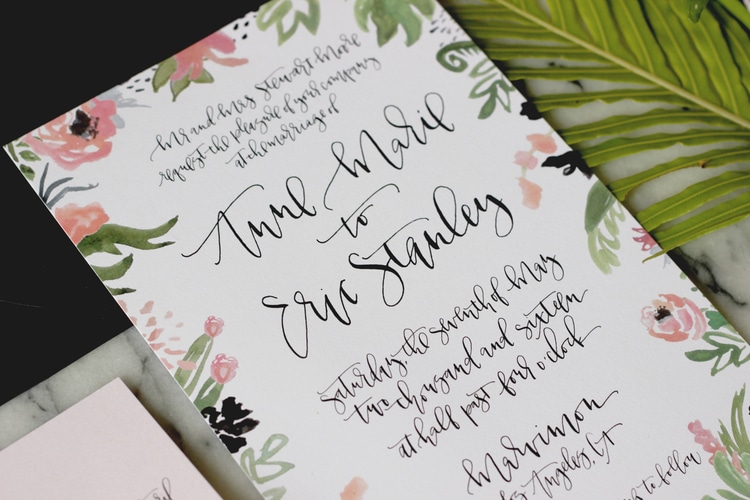 Mr and Mrs Stewart Moore
request the pleasure of your company
at the marriage of
Anne Marie
to
Eric Stanley
Saturday the seventh of May
two thousand and sixteen
at half past four o'clock
Marvimon
Angeles, CA
to follow